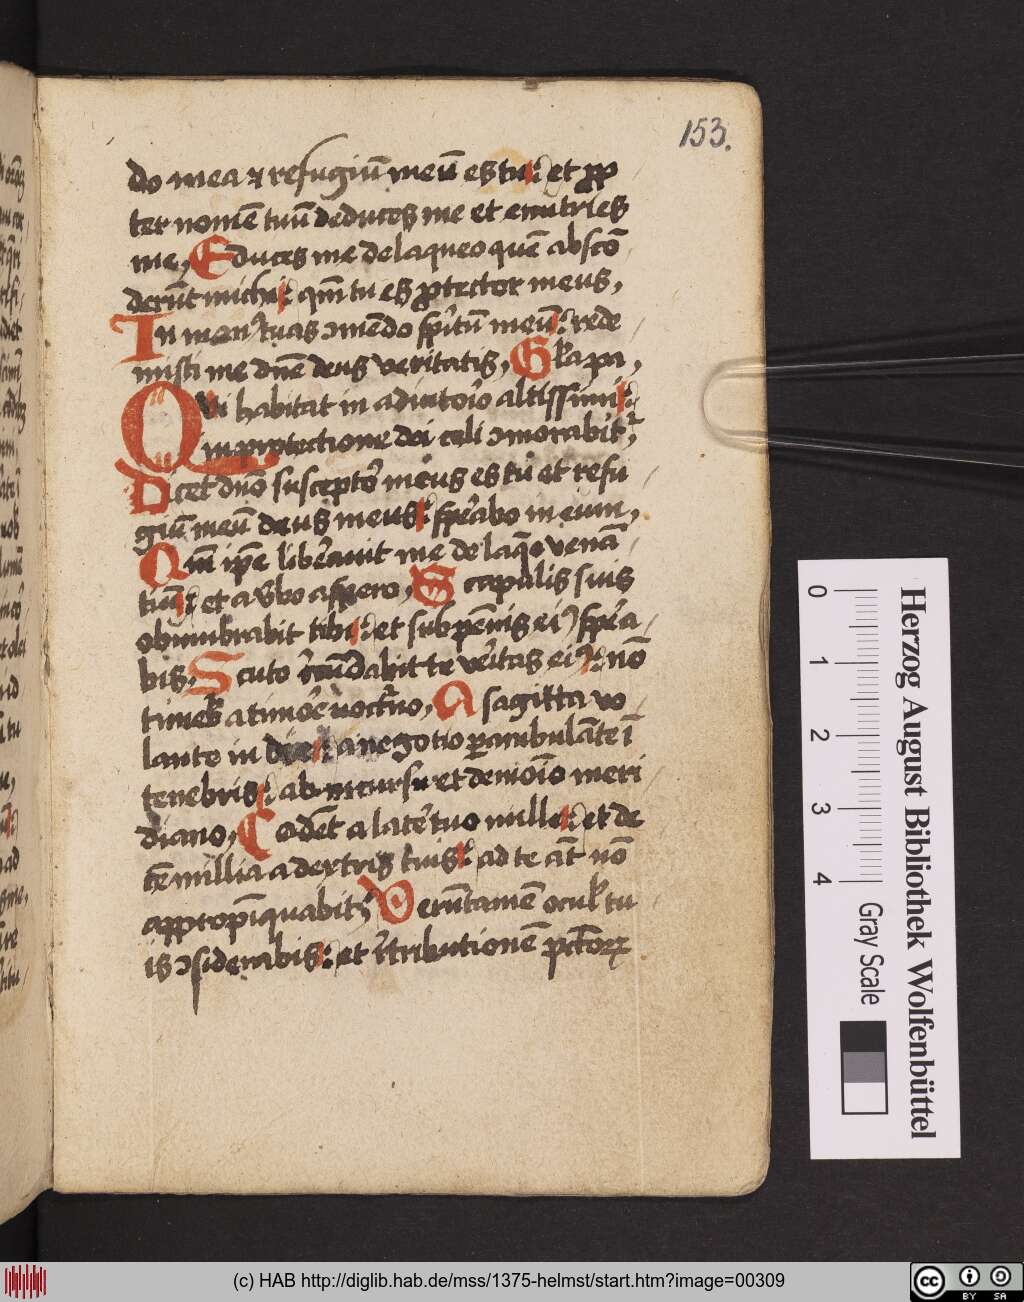 153.
do mea ⁊ refugiū meū es tu: et prop
ter nomē tuū deduces me et enutries
me, Educes me de laqueo quē abscō
derūt michi: qm̄ tu es ꝓtector meus,
In man᷒ tuas ↄmēdo sp̄ritū meū: rede
misti me dn̄e deus veritatis, Gl̄a pa,
Qvi habitat in adiutoīo altissimi:
in protectione dei celi ↄmorabit᷒
Dicet dn̄o susceptor meus es tu et refu
giū meū deus meus: sperabo in eum,
Qm̄ ip̄e liberauit me de laq̄o venā
tiū: et a v̄bo aspero, Scapulis suis
obumbrabit tibi: et sub pēnis ei᷒ spera
bis, Scuto c̄cūdabit te veritas ei᷒: nō
timeb̄ a timore nocturno, A sagitta vo
lante in die: a negotio ꝑambulāte ī
tenebris: ab incursu et demoīo meri
diano, Cadēt a latere tuo mille: et de
cē millia a dextris tuis: ad te aūt nō
appropīquabit᷒ Verūtamē ocul̄ tu
is ↄsiderabis: et r̄tributionē pctōꝝ
Herzog August Bibliothek Wolfenbüttel
0 1 2 3 4
Gray Scale
(c) HAB http://diglib.hab.de/mss/1375-helmst/start.htm?image=00309
cc BY SA